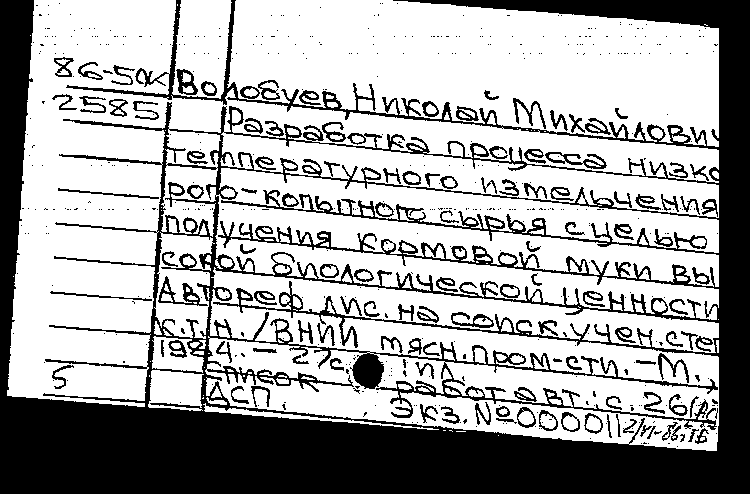 86-5ак Волобуев, Николай Михайлович
2585 Разработка процесса низко
температурного измельчения
рого-копытного сырья с целью
получения кормовой муки вы
сокой биологической ценности
Автореф. дис. на соиск. учен. степ
к.т.н. / ВНИИ мясн. пром-сти. - М.,
1984. - 27с. ил.
5 Список работ авт.: с. 26
ДСП. Экз. № 000011